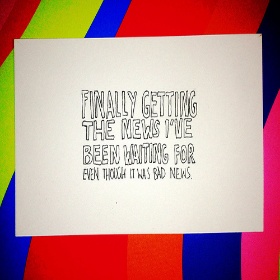 FINALLY GETTING
THE NEWS I'VE
BEEN WAITING FOR
EVEN THOUGH IT WAS BAD NEWS.